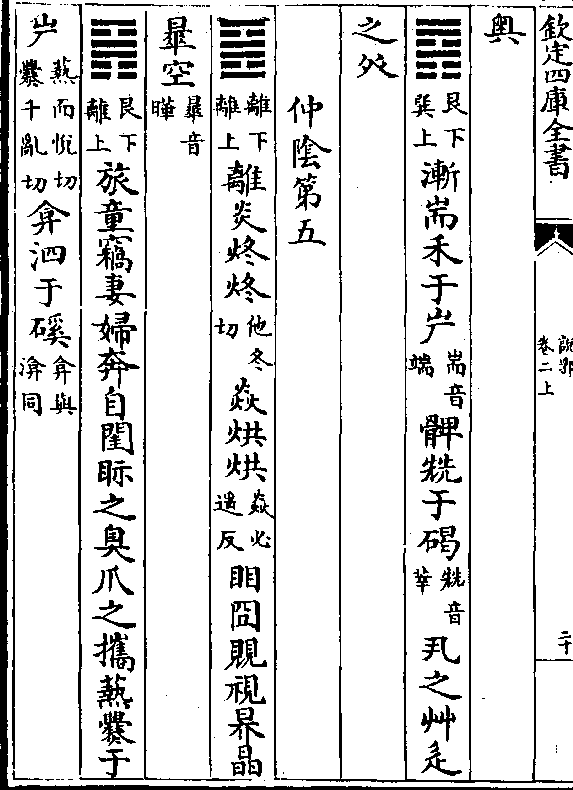 欽定四庫全書
說郛
卷二上
二十
奧
艮下巽上漸耑禾于屵耑音端髀兟于碣兟音莘丮之艸辵
之𡴆
仲陰第五
離下離上離炎炵炵他冬切焱烘烘焱必遥反䀠囧覞視昦晶
暈空暈音暉
艮下離上旅童竊妻婦奔自閨眎之奥爪之攜爇爨于
屵爇而悅切爨千亂切弇泗于磎弇與渰同